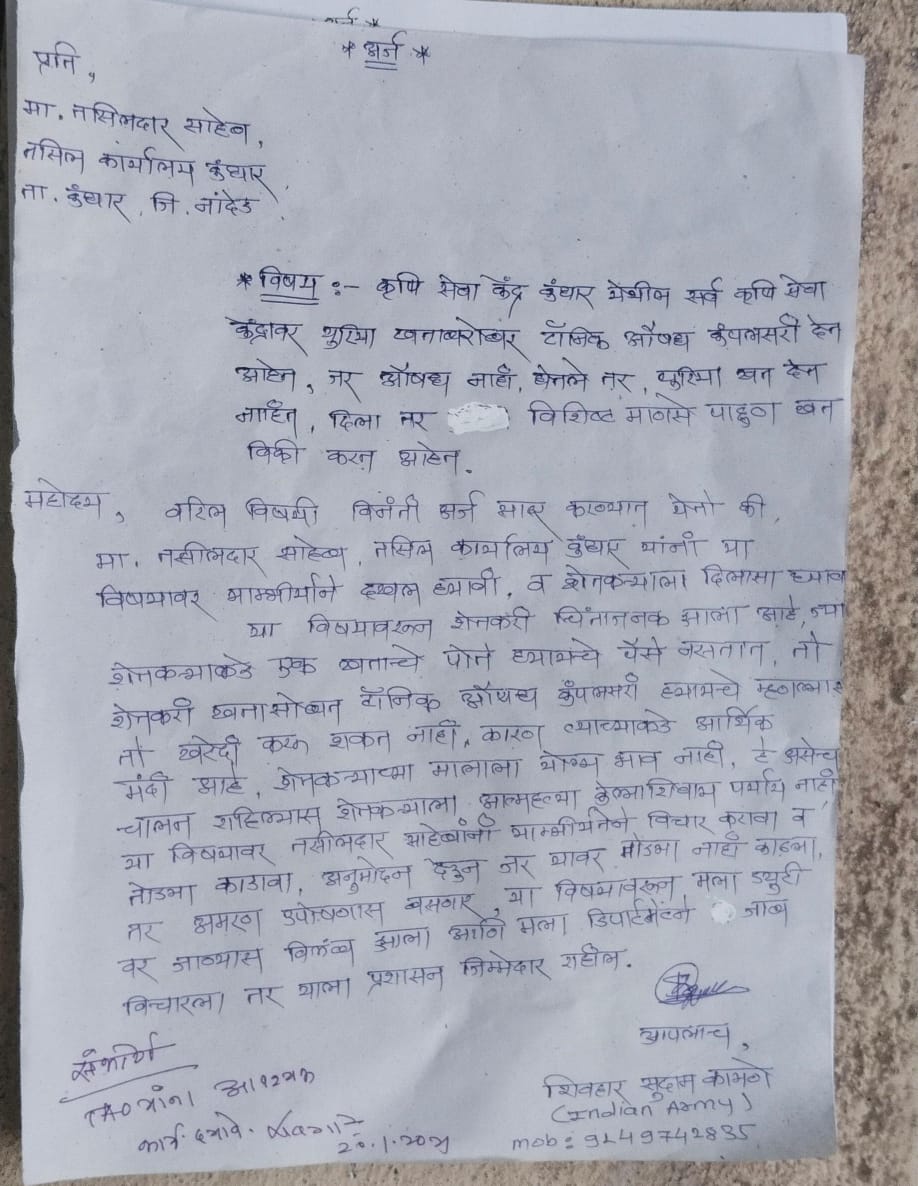 * अर्ज *
प्रति,
मा. तसिलदार साहेब,
तसिल कार्यालय कंधार,
ता. कंधार, जि. नांदेड.
* विषय :- कृषि सेवा केंद्र कंधार येथील सर्व कृषि सेवा
केंद्रावर युरिया खताबरोबर टॉनिक औषध कंपलसरी देत
आहेत, जर औषध नाही घेतले तर, युरिया खत देत
नाहित, दिला तर विशिष्ट माणसे पाहुण खत
विक्री करत आहेत.
महोदय, वरिल विषयी विनंती अर्ज सादर करण्यात येतो की,
मा. तसीलदार साहेब, तसिल कार्यालय कंधार यांनी या
विषयावर गाम्भीर्याने दखल घ्यावी, व शेतकऱ्याला दिलासा द्यावा
या विषयावरून शेतकरी चिंताजनक झाला आहे, ज्या
शेतकऱ्याकडे एक खताचे पोते घ्यायचे पैसे नसतात, तो
शेतकरी खतासोबत टॉनिक औषध कंपलसरी घ्यायचे म्हणल्यास
तो खरेदी करू शकत नाही, कारण त्याच्याकडे आर्थिक
मंदी आहे, शेतकऱ्याच्या मालाला योग्य भाव नाही, हे असेच
चालत राहिल्यास शेतकऱ्याला आत्महत्या केल्याशिवाय पर्याय नाही
या विषयावर तसीलदार साहेबांनी गाम्भीर्यतेने विचार करावा व
तोडगा काढावा, अनुमोदन देऊन जर यावर तोडगा नाही काढला,
तर अमरण उपोषणास बसणार, या विषयावरून मला ड्युटी
वर जाण्यास विलंब झाला आणि मला डिपार्टमेंटने जाब
विचारला तर याला प्रशासन जिम्मेदार राहील.
आपलाच,
शिवहार सुदाम कामगे
(Indian Army)
mob: 9249742835
TAO यांना आवश्यक
कार्य. द्यावे.
20.1.20